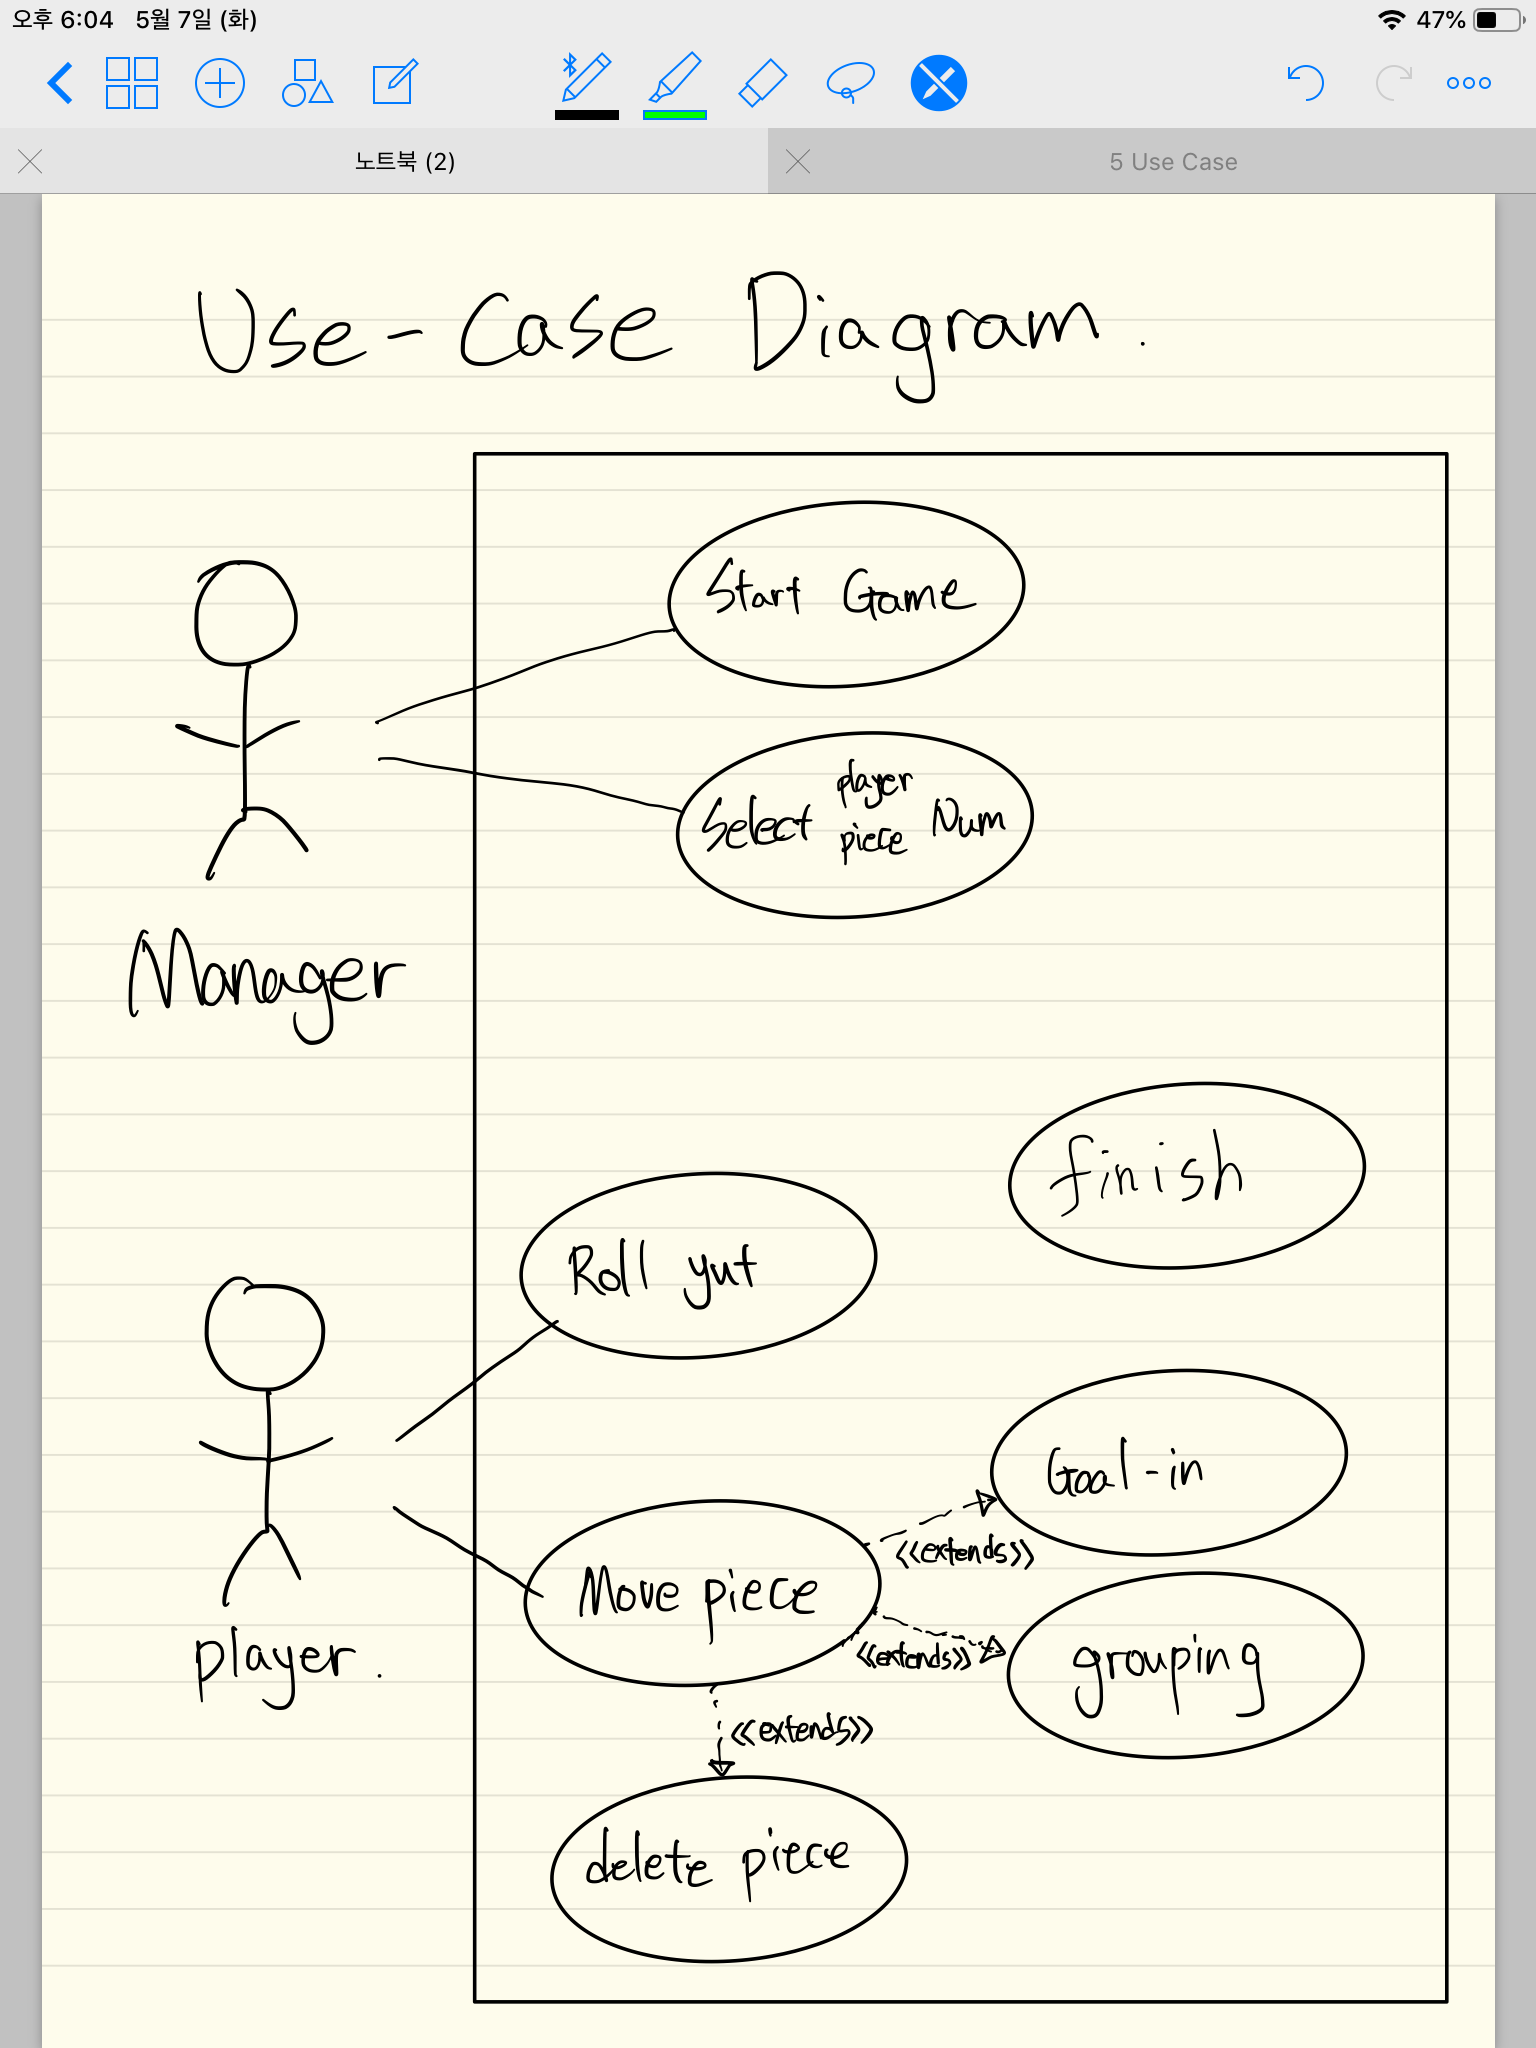 오후 6:04 5월 7일 (화) 47%
노트북 (2) 5 Use Case
Use-Case Diagram.
Start Game
Select player piece Num
Manager
finish
Roll yut
Goal-in
<<extends>>
Move piece
<<extends>>
grouping
player.
<<extends>>
delete piece